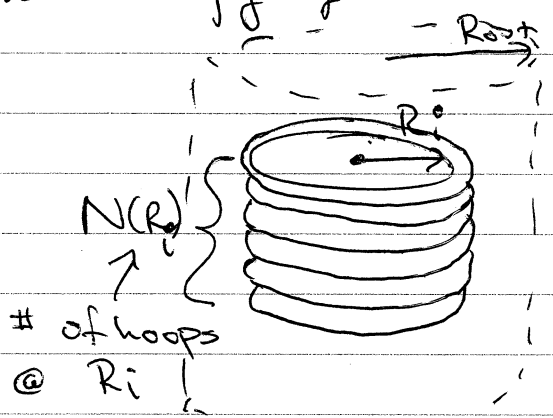 Rout
Ri
N(Ri)
# of hoops
@ Ri